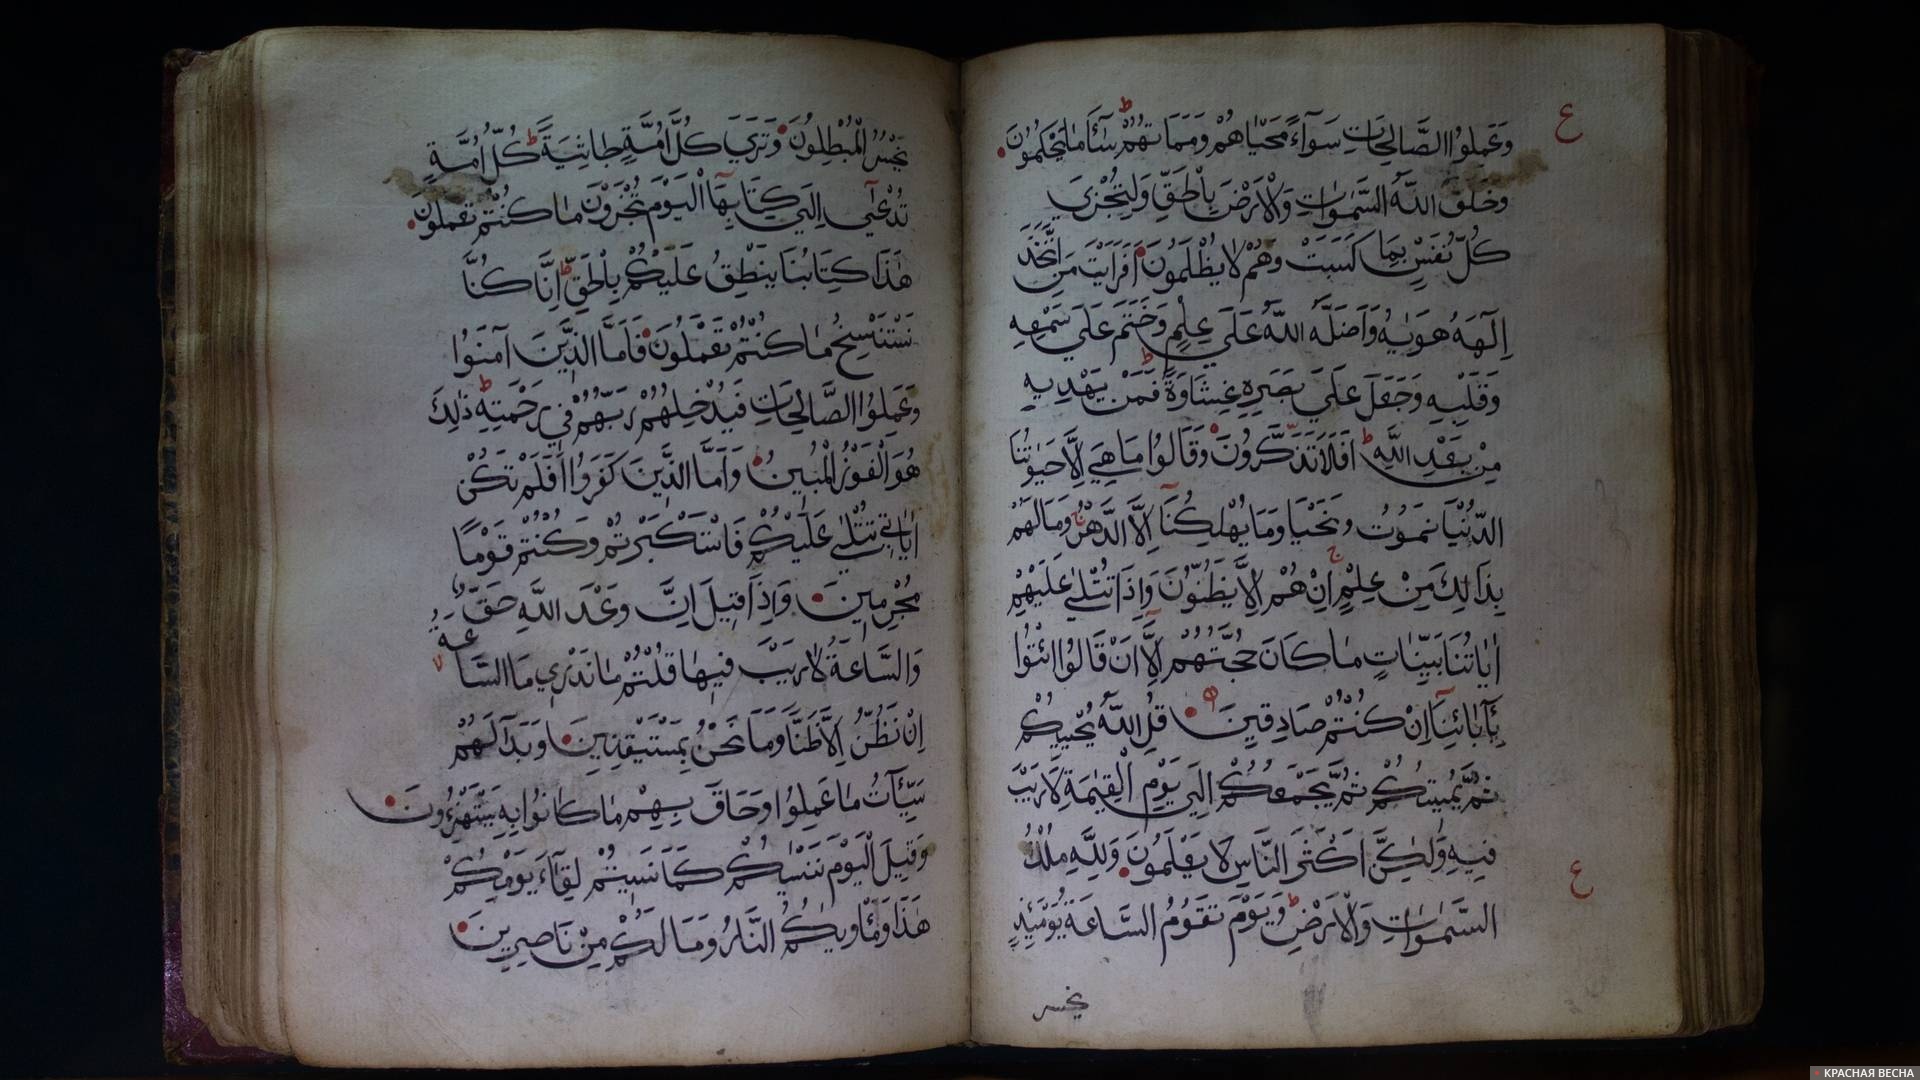 وَعَمِلُوا الصَّالِحَاتِ سَوَآءً مَحْيَاهُمْ وَمَمَاتُهُمْ ط سَآءَ مَا يَحْكُمُونَ
ع
وَخَلَقَ اللّٰهُ السَّمٰوَاتِ وَالْاَرْضَ بِالْحَقِّ وَلِتُجْزٰي
كُلُّ نَفْسٍ بِمَا كَسَبَتْ وَهُمْ لَا يُظْلَمُونَ اَفَرَاَيْتَ مَنِ اتَّخَذَ
اِلٰهَهُ هَوٰيهُ وَاَضَلَّهُ اللّٰهُ عَلٰي عِلْمٍ وَخَتَمَ عَلٰي سَمْعِهِ
وَقَلْبِهِ وَجَعَلَ عَلٰي بَصَرِهِ غِشَاوَةً ط فَمَنْ يَهْدِيهِ
مِنْ بَعْدِ اللّٰهِ ط اَفَلَا تَذَكَّرُونَ وَقَالُوا مَا هِيَ اِلَّا حَيٰوتُنَا
الدُّنْيَا نَمُوتُ وَنَحْيَا وَمَا يُهْلِكُنَآ اِلَّا الدَّهْرُ ج وَمَا لَهُمْ
بِذَالِكَ مِنْ عِلْمٍ ج اِنْ هُمْ اِلَّا يَظُنُّونَ وَاِذَا تُتْلٰي عَلَيْهِمْ
اٰيَاتُنَا بَيِّنَاتٍ مَا كَانَ حُجَّتَهُمْ اِلَّآ اَنْ قَالُوا ائْتُوا
بِآبَائِنَآ اِنْ كُنْتُمْ صَادِقِينَ قُلِ اللّٰهُ يُحْيِيكُمْ
ثُمَّ يُمِيتُكُمْ ثُمَّ يَجْمَعُكُمْ اِلٰي يَوْمِ الْقِيٰمَةِ لَا رَيْبَ
فِيهِ وَلٰكِنَّ اَكْثَرَ النَّاسِ لَا يَعْلَمُونَ وَلِلّٰهِ مُلْكُ
ع
السَّمٰوَاتِ وَالْاَرْضِ ط وَيَوْمَ تَقُومُ السَّاعَةُ يَوْمَئِذٍ
يخسر
يَخْسَرُ الْمُبْطِلُونَ وَتَرٰي كُلَّ اُمَّةٍ جَاثِيَةً ط كُلُّ اُمَّةٍ
تُدْعٰٓي اِلٰي كِتَابِهَا اَلْيَوْمَ تُجْزَوْنَ مَا كُنْتُمْ تَعْمَلُونَ
هٰذَا كِتَابُنَا يَنْطِقُ عَلَيْكُمْ بِالْحَقِّ ط اِنَّا كُنَّا
نَسْتَنْسِخُ مَا كُنْتُمْ تَعْمَلُونَ فَاَمَّا الَّذِينَ آمَنُوا
وَعَمِلُوا الصَّالِحَاتِ فَيُدْخِلُهُمْ رَبُّهُمْ فِي رَحْمَتِهِ ط ذٰلِكَ
هُوَ الْفَوْزُ الْمُبِينُ وَاَمَّا الَّذِينَ كَفَرُوا اَفَلَمْ تَكُنْ
اٰيَاتِي تُتْلٰي عَلَيْكُمْ فَاسْتَكْبَرْتُمْ وَكُنْتُمْ قَوْمًا
مُجْرِمِينَ وَاِذَا قِيلَ اِنَّ وَعْدَ اللّٰهِ حَقٌّ
وَالسَّاعَةُ لَا رَيْبَ فِيهَا قُلْتُمْ مَا نَدْرِي مَا السَّاعَةُ
اِنْ نَظُنُّ اِلَّا ظَنًّا وَمَا نَحْنُ بِمُسْتَيْقِنِينَ وَبَدَا لَهُمْ
سَيِّئَآتُ مَا عَمِلُوا وَحَاقَ بِهِمْ مَا كَانُوا بِهِ يَسْتَهْزِءُونَ
وَقِيلَ الْيَوْمَ نَنْسٰيكُمْ كَمَا نَسِيتُمْ لِقَآءَ يَوْمِكُمْ
هٰذَا وَمَاْوٰيكُمُ النَّارُ وَمَا لَكُمْ مِنْ نَاصِرِينَ
КРАСНАЯ ВЕСНА